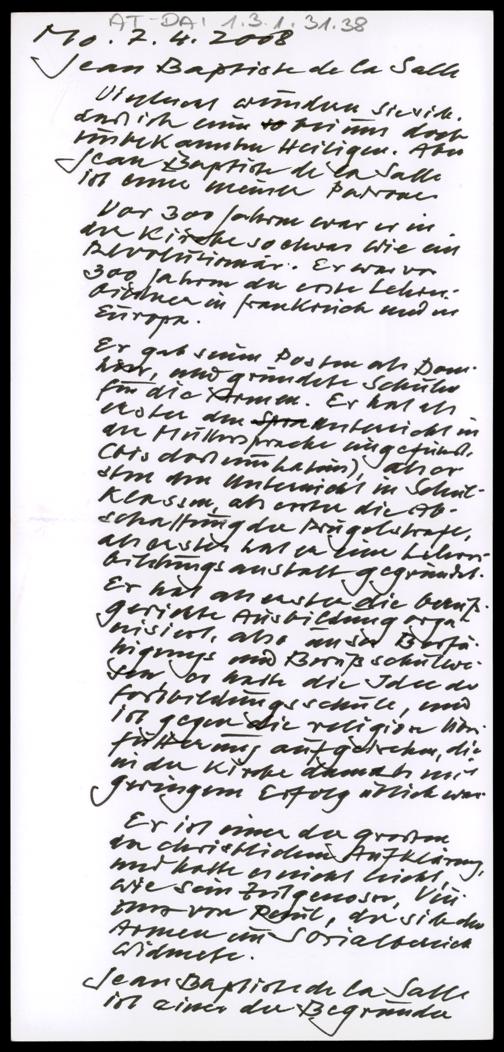 AT-DA: 1.3.1.31.38
Mo. 7.4.2008
Jean Baptiste de la Salle
Vielleicht wundern Sie sich,
daß ich ein bei uns doch
unbekannten Heiligen. Aber
Jean Baptiste de la Salle
ist einer meiner Patrone.
Vor 300 Jahren war er in
der Kirche so etwas wie ein
Revolutionär. Er war vor
300 Jahren der erste Lehrer-
bildner in Frankreich und in
Europa.
Er gab seinen Posten als Dom-
herr, und gründete Schulen
für die Armen. Er hat als
erster den Unterricht in
der Muttersprache eingeführt
(bis dort nur Latein), als er-
ster den Unterricht in Schul-
Klassen, als erster die Ab-
schaffung der Prügelstrafe,
als erster hat er eine Lehrer-
bildungsanstalt gegründet.
Er hat als erster die berufs-
gerichte Ausbildung orga-
nisiert, also unser
und Berufsschulwe-
sen, er hatte die Idee der
Fortbildungsschule, und
ist gegen die religiöse Über-
fütterung aufgetreten, die
in der Kirche damals mit
geringem Erfolg üblich war.
Er ist einer der großen
der christlichen Aufklärung,
und hatte es nicht leicht,
wie sein Zeitgenosse, Vin-
zenz von Paul, der sich den
Armen im Sozialbereich
widmete.
Jean Baptiste de la Salle
ist einer der Begründer